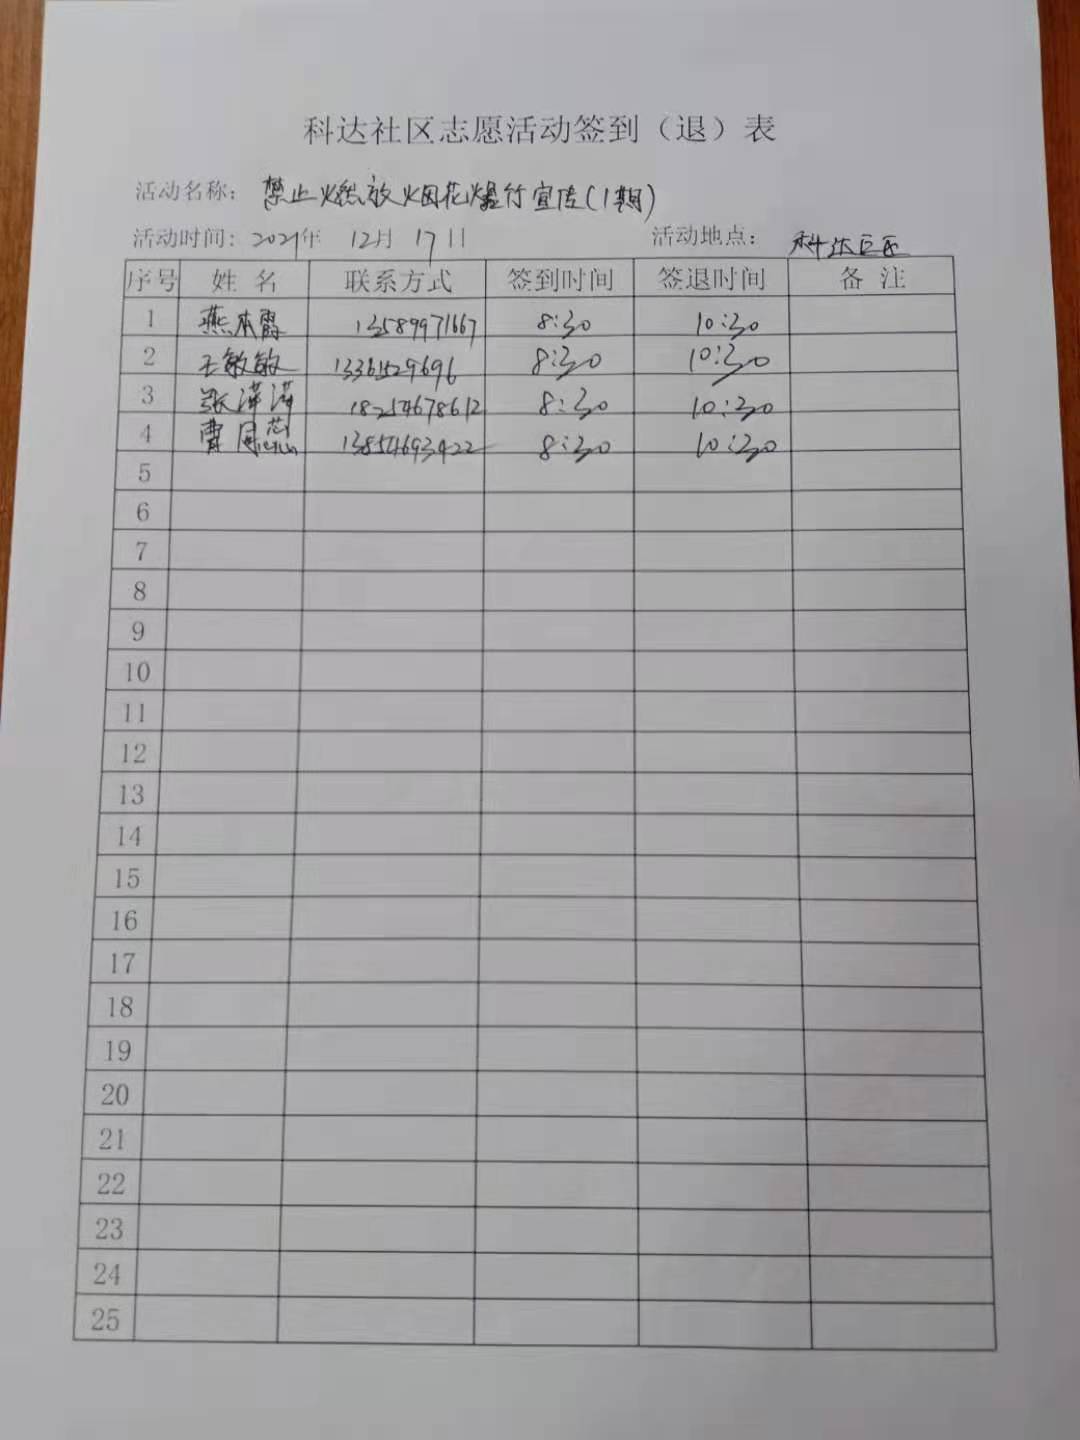 科达社区志愿活动签到（退）表
活动名称：禁止燃放烟花爆竹宣传(1期)
活动时间：2021年 12月 17日 活动地点：科达社区
序号 姓 名 联系方式 签到时间 签退时间 备 注
1 燕本霞 13589971667 8:30 10:30
2 王敏敏 13361529696 8:30 10:30
3 张萍萍 18254678612 8:30 10:30
4 曹 13854693422 8:30 10:30
5
6
7
8
9
10
11
12
13
14
15
16
17
18
19
20
21
22
23
24
25